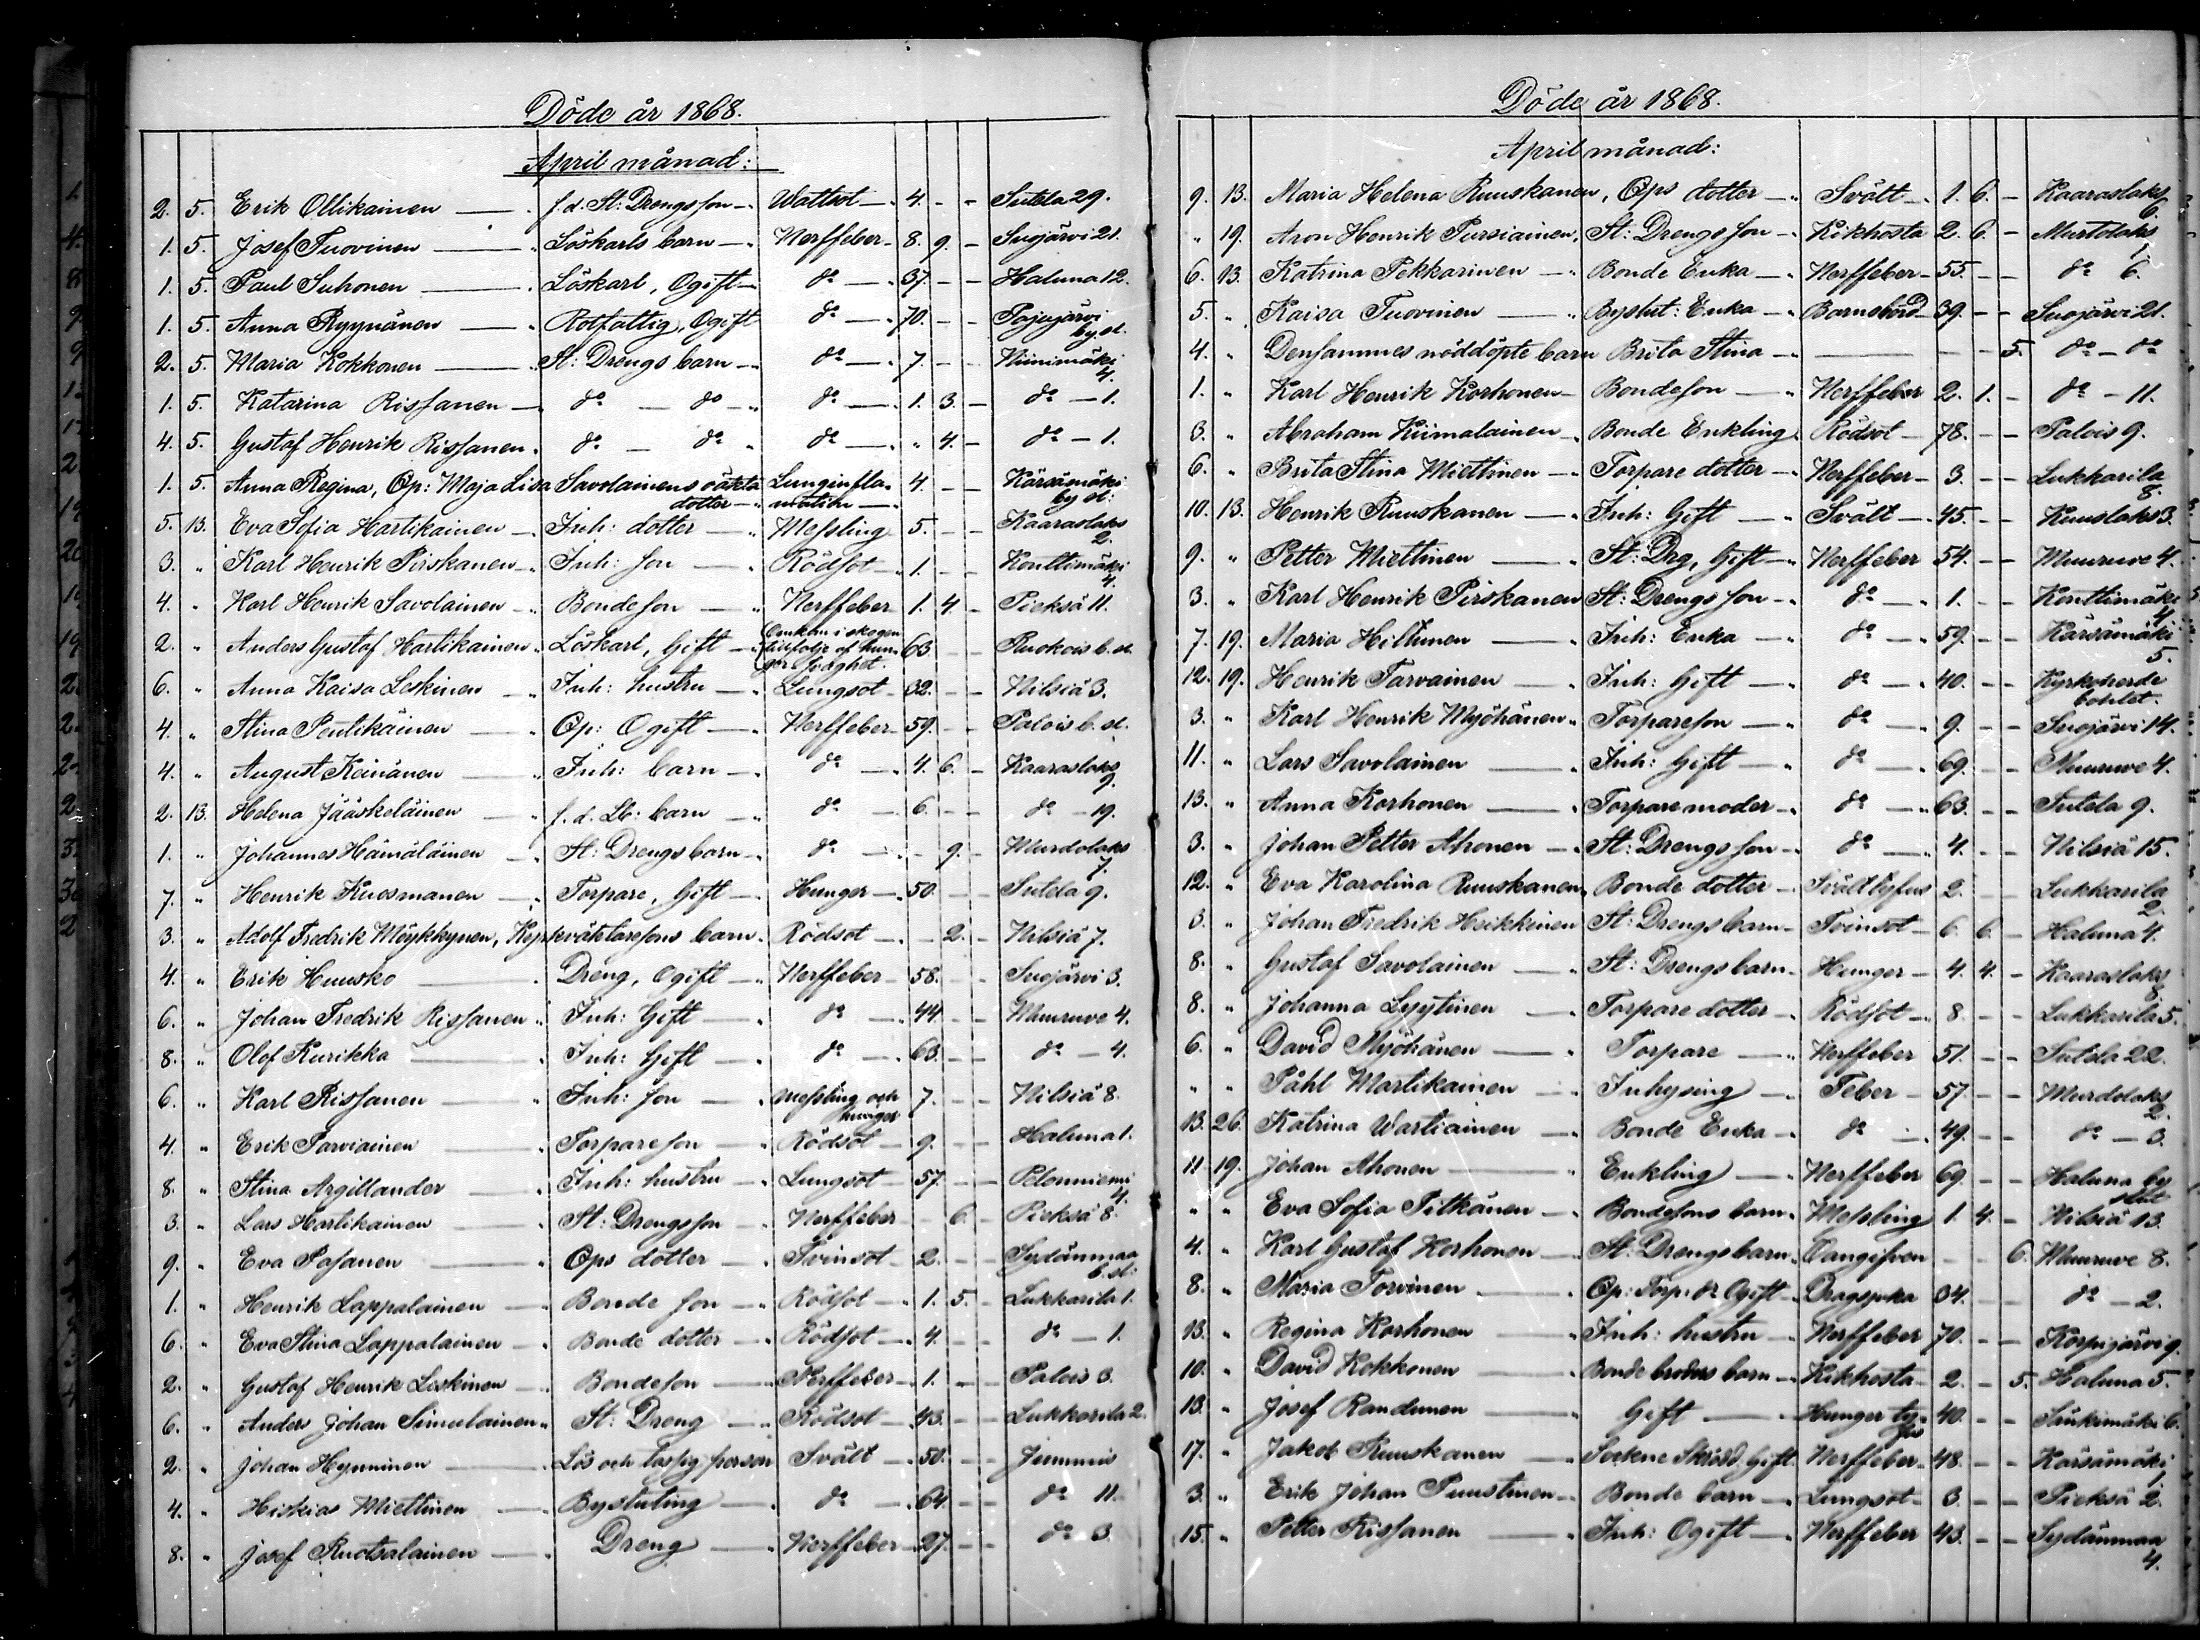 Döde år 1868.
April månad:
2. 5. Erik Ollikainen f.d. St: Drengsson Wattsot 4. - - Sutela 29.
1. 5. Josef Tuovinen Löskarls barn Nerffeber 8. 9. - Suojärvi 21.
1. 5. Paul Suhonen Löskarl, Ogift do 37. - - Haluna 12.
1. 5. Anna Ryynänen Rotfattig, Ogift do 70. - - Pajujärvi
by sl.
2. 5. Maria Kokkonen St: Drengs barn do 7. - - Niinimäki
4.
1. 5. Katarina Rissanen do - do do 1. 3. - do - 1.
4. 5. Gustaf Henrik Rissanen do - do do " 4. - do - 1.
1. 5. Anna Regina, Qp: Maja Lisa Savolainens oäkta Lunginfla- 4. - - Kärsämäki
dotter mation by sl:
5. 13. Eva Sofia Hartikainen Inh: dotter Messling 5. - - Kaaraslaks
2.
3. " Karl Henrik Pirskanen Inh: son Rödsot 1. - - Konttimäki
4.
4. " Karl Henrik Savolainen Bondeson Nerffeber 1. 4. - Pieksä 11.
2. " Anders Gustaf Hartikainen Löskarl, Gift Omkom i skogen
tillfölje af hun- 63 - - Ruokois b. sl.
ger svaghet.
6. " Anna Kaisa Leskinen Inh: hustru Lungsot 32. - - Nilsiä 3.
4. " Stina Pentikäinen Qp: Ogift Nerffeber 59. - - Palois b. sl.
4. " August Keinänen Inh: barn do 4. 6. - Kaaraslaks
9.
2. 13. Helena Jääskeläinen f.d. Lb: barn do 6. - - do - 19.
1. " Johannes Hämäläinen St: Drengs barn do - 9. - Murdolaks
7.
7. " Henrik Kuosmanen Torpare, Gift Hunger 50. - - Sutela 9.
3. " Adolf Fredrik Möykkynen, Kyrkväktaresons barn Rödsot - 2. - Nilsiä 7.
4. " Erik Huusko Dreng, Ogift Nerffeber 58. - - Suojärvi 3.
6. " Johan Fredrik Rissanen Inh: Gift do 44 - - Muuruve 4.
8. " Olof Kurikka Inh: Gift do 63. - - do - 4.
6. " Karl Rissanen Inh: son Messling och 7. - - Nilsiä 8.
hunger
4. " Erik Parviainen Torpareson Rödsot 9. - - Haluna 1.
8. " Stina Argillander Inh: hustru Lungsot 57. - - Pelonniemi
4.
3. " Lars Hartikainen St: Drengsson Nerffeber - 6. - Pieksä 8.
9. " Eva Pasanen Qps dotter Tvinsot 2. - - Sydänmaa
b. sl:
1. " Henrik Lappalainen Bonde son Rödsot 1. 5. - Lukkarila 1.
6. " Eva Stina Lappalainen Bonde dotter Rödsot 4. - - do - 1.
2. " Gustaf Henrik Leskinen Bondeson Nerffeber 1. - - Palois 3.
6. " Anders Johan Simulainen St: Dreng Rödsot 43. - - Lukkarila 2.
2. " Johan Hynninen Lös och lastig person Svält 50. - - Jummis
4. " Hiskias Miettinen Bysluting do 64. - - do 11.
8. " Josef Ruotsalainen Dreng Nerffeber 27. - - do 3.
Döde år 1868.
April månad:
9. 13. Maria Helena Ruuskanen, Qps dotter Svält 1. 6. - Kaaraslaks
6.
" 19. Aron Henrik Pursiainen, St: Drengsson Kikhosta 2. 6. - Murtolaks
1.
6. 13. Katrina Pekkarinen Bonde Enka Nerffeber 55. - - do 6.
5. " Kaisa Tuovinen Byslut: Enka Barnsbörd 39. - - Suojärvi 21.
4. " Densammes nöddöpte barn Brita Stina - - 5. do - do
1. " Karl Henrik Korhonen Bondeson Nerffeber 2. 1. - do - 11.
3. " Abraham Kiimalainen Bonde Enkling Rödsot 78. - - Palois 9.
6. " Brita Stina Miettinen Torpare dotter Nerffeber 3. - - Lukkarila
8.
10. 13. Henrik Ruuskanen Inh: Gift Svält 45. - - Kuuslaks 3.
9. " Petter Miettinen St: Drg, Gift Nerffeber 54. - - Muuruve 4.
3. " Karl Henrik Pirskanen St: Drengs son do 1. - - Konttimäki
4.
7. 19. Maria Hiltunen Inh: Enka do 59. - - Kärsämäki
5.
12. 19. Henrik Tarvainen Inh: Gift do 40. - - Kyrkoherde
bohlet.
3. " Karl Henrik Myöhänen Torpareson do 9. - - Suojärvi 14.
11. " Lars Savolainen Inh: Gift do 69. - - Muuruve 4.
13. " Anna Korhonen Torpare moder do 63. - - Sutela 9.
3. " Johan Petter Ahonen St: Drengs son do 4. - - Nilsiä 15.
12. " Eva Karolina Ruuskanen Bonde dotter Svält tyfus 2. - - Lukkarila
2.
3. " Johan Fredrik Heikkinen St: Drengs barn Tvinsot 6. 6. - Haluna 4.
8. " Gustaf Savolainen St: Drengs barn Hunger 4. 4. - Kaaraslaks
8. " Johanna Lyytinen Torpare dotter Rödsot 8. - - Lukkarila 5.
6. " David Myöhänen Torpare Nerffeber 51. - - Sutela 22.
" " Påhl Martikainen Inhysing Feber 57. - - Murdolaks
2.
13. 26. Katrina Wartiainen Bonde Enka do 49. - - do - 3.
11. 19. Johan Ahonen Enkling Nerffeber 69. - - Haluna by
slut
" " Eva Sofia Pitkänen Bondesons barn Messling 1. 4. - Nilsiä 13.
4. " Karl Gustaf Korhonen St: Drengs barn - - 6. Muuruve 8.
8. " Maria Torvinen Qp: Torp: dr Ogift 34. - - do - 2.
13. " Regina Korhonen Inh: hustru Nerffeber 70. - - Korpijärvi 9.
10. " David Kokkonen Bonde broders barn Kikhosta 2. - 5. Haluna 5.
13. " Josef Randunen Gift Hunger ty- 40. - - Sänkimäki 6.
fus
17. " Jakob Ruuskanen Sockne Skrädd. Gift Nerffeber 48. - - Kärsämäki
1.
3. " Erik Johan Puustinen Bonde barn Lungsot 3. - - Pieksä 2.
15. " Petter Rissanen Inh: Ogift Nerffeber 43. - - Sydänmaa
4.